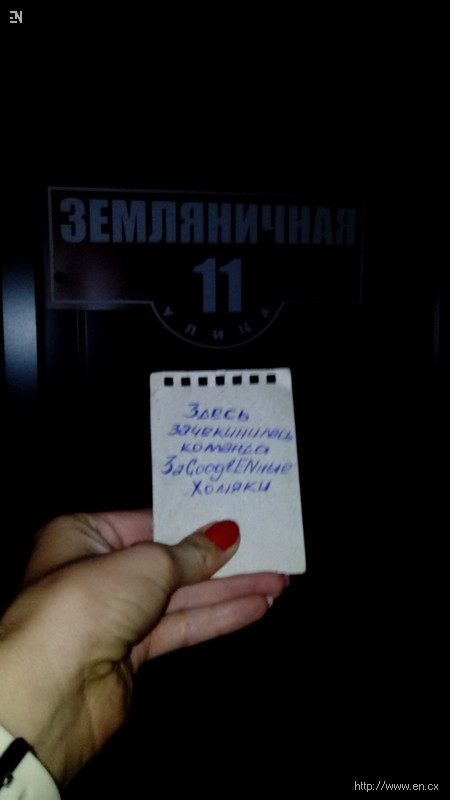 EN
ЗЕМЛЯНИЧНАЯ
11
УЛИЦА
Здесь
зачекинилась
команда
ЗаGooglENные
Хомяки
http://www.en.cx